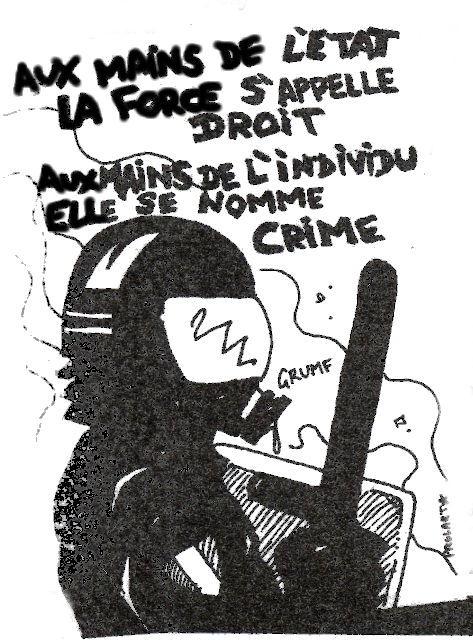 AUX MAINS DE L'ETAT
LA FORCE S'APPELLE
DROIT
AUX MAINS DE L'INDIVIDU
ELLE SE NOMME
CRIME
GRUMF